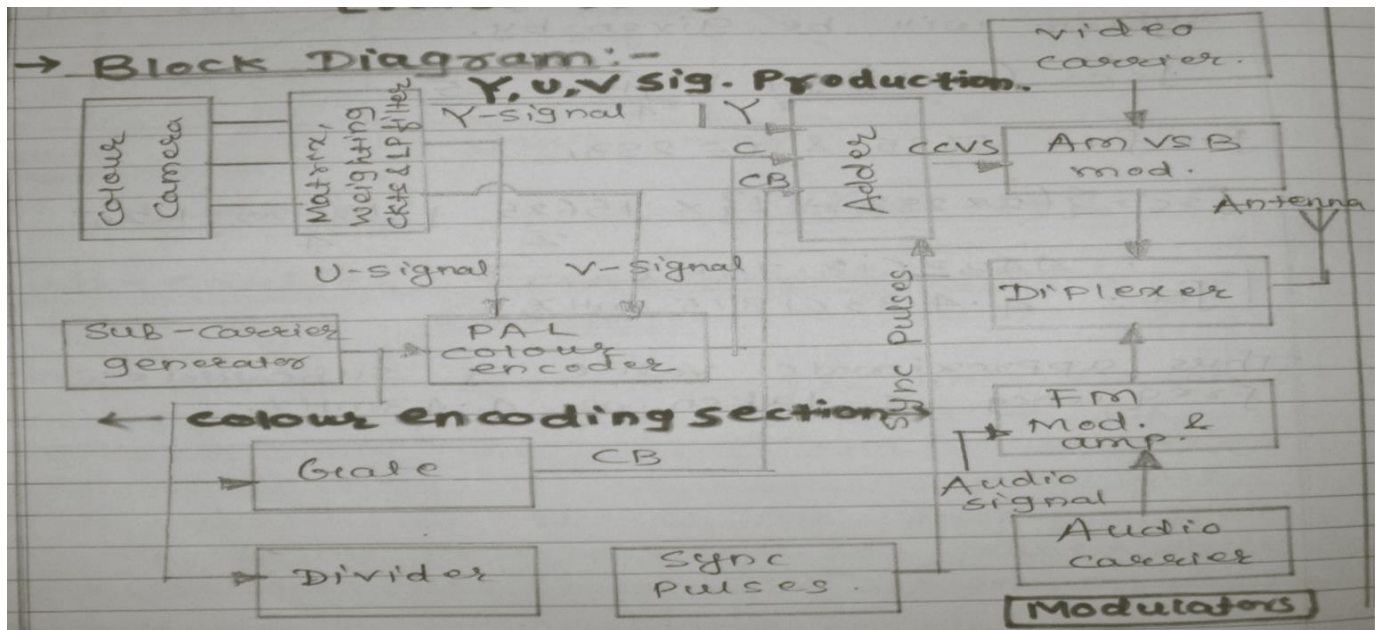 → Block Diagram:-
Y, U, V Sig. Production.
Colour
Camera
Matrix,
weighting
ckts & LP filter
Y-signal
Y
C
CB
Adder
CCVS
video
carrier.
Am VSB
mod.
Antenna
U-signal
V-signal
Diplexer
Sub-carrier
generator
PAL
colour
encoder
Sync Pulses.
← colour encoding section →
FM
Mod. &
amp.
Gate
CB
Audio
signal
Divider
Sync
Pulses.
Audio
carrier
Modulators